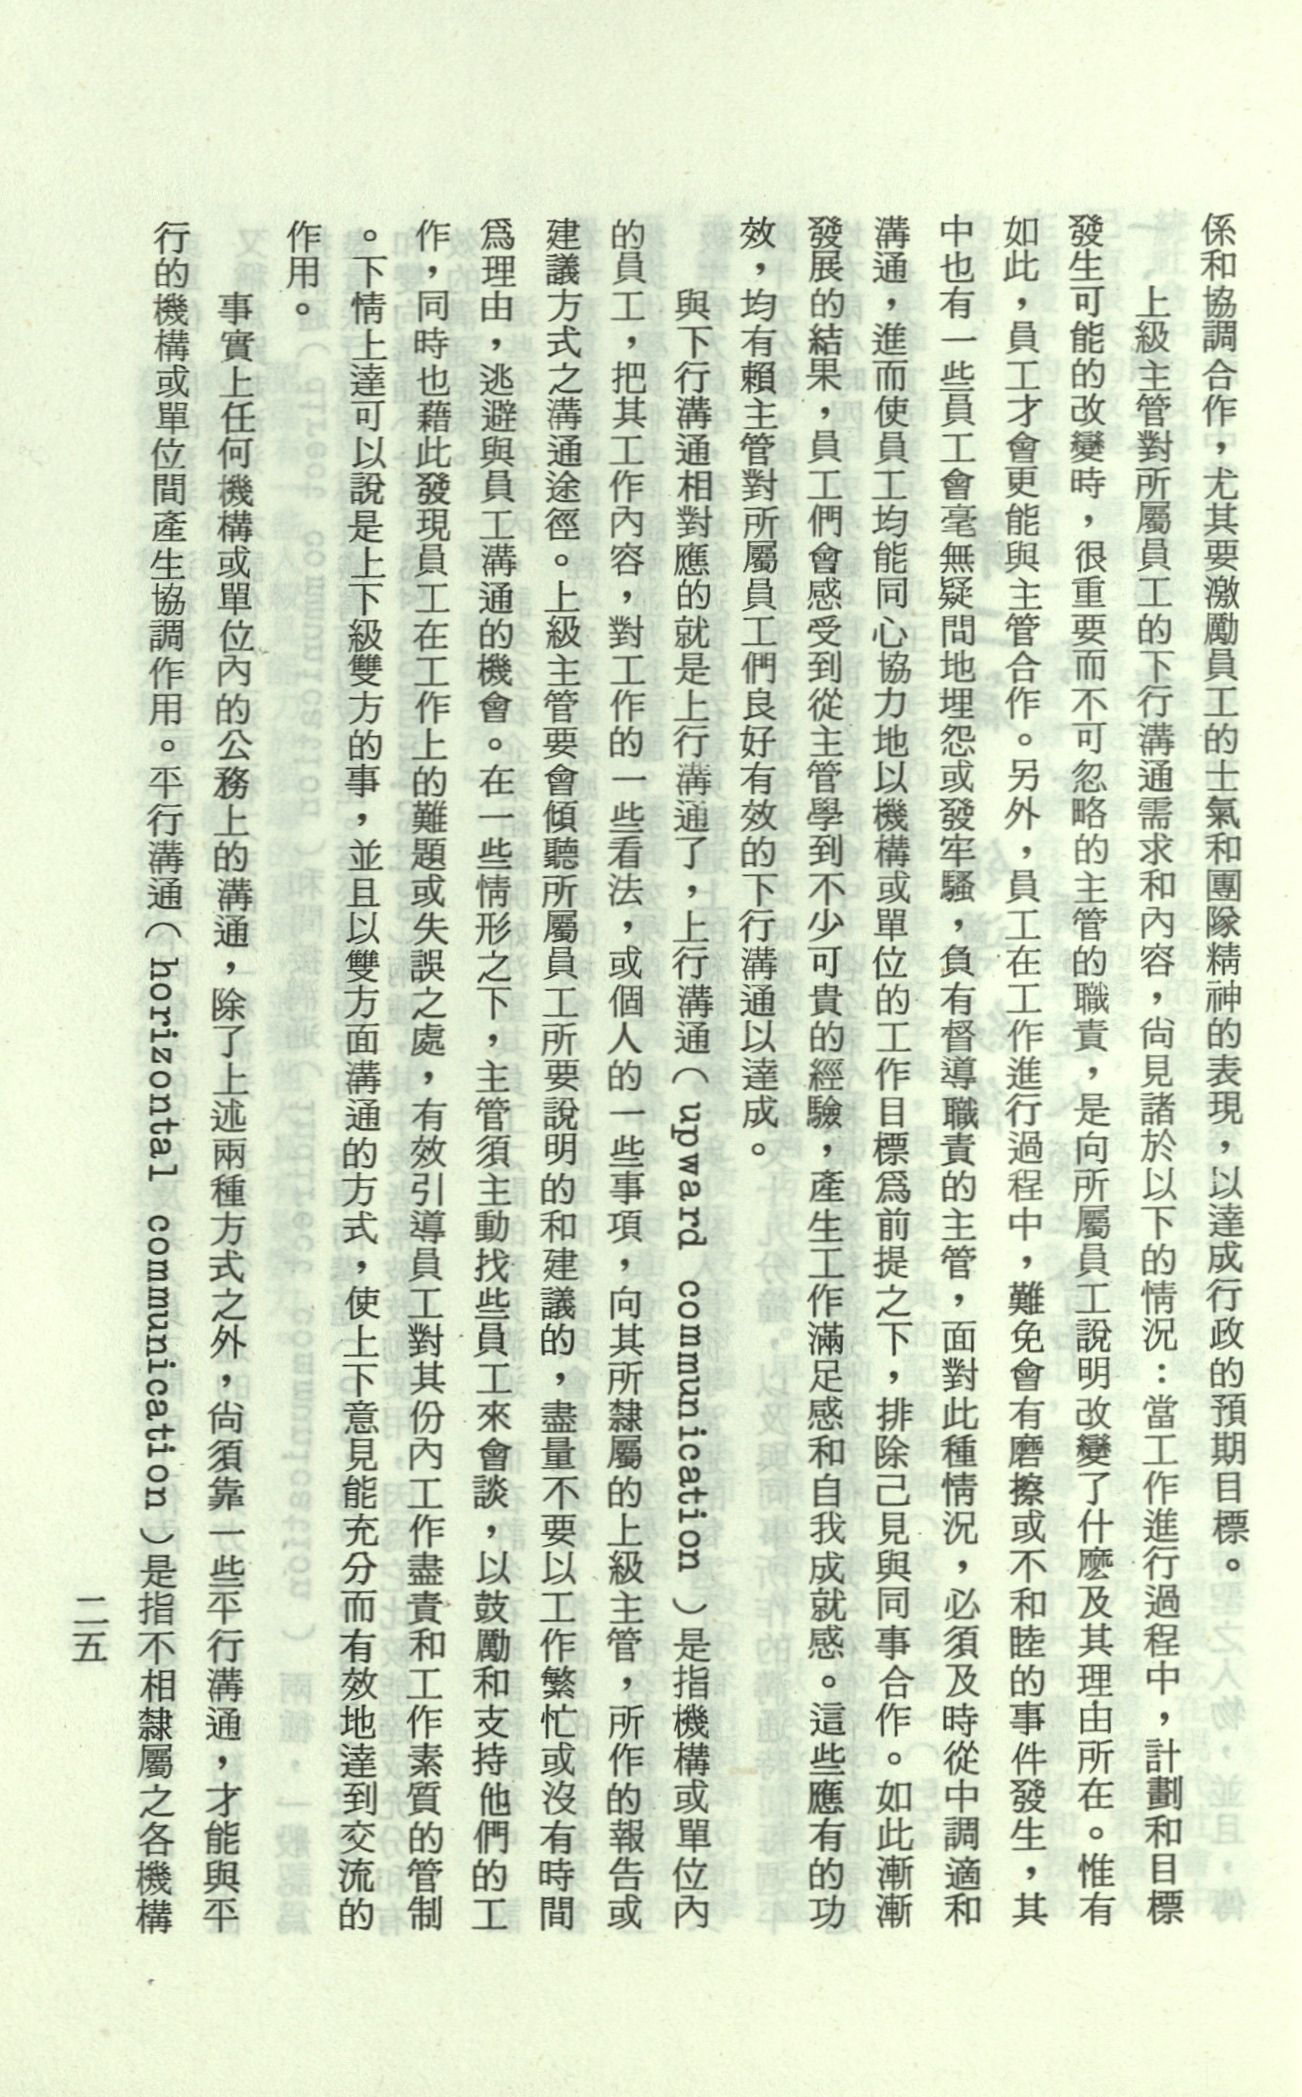 係和協調合作，尤其要激勵員工的士氣和團隊精神的表現，以達成行政的預期目標。
上級主管對所屬員工的下行溝通需求和內容，尙見諸於以下的情況：當工作進行過程中，計劃和目標
發生可能的改變時，很重要而不可忽略的主管的職責，是向所屬員工說明改變了什麽及其理由所在。惟有
如此，員工才會更能與主管合作。另外，員工在工作進行過程中，難免會有磨擦或不和睦的事件發生，其
中也有一些員工會毫無疑問地埋怨或發牢騷，負有督導職責的主管，面對此種情況，必須及時從中調適和
溝通，進而使員工均能同心協力地以機構或單位的工作目標爲前提之下，排除己見與同事合作。如此漸漸
發展的結果，員工們會感受到從主管學到不少可貴的經驗，產生工作滿足感和自我成就感。這些應有的功
效，均有賴主管對所屬員工們良好有效的下行溝通以達成。
與下行溝通相對應的就是上行溝通了，上行溝通（upward communication）是指機構或單位內
的員工，把其工作內容，對工作的一些看法，或個人的一些事項，向其所隸屬的上級主管，所作的報告或
建議方式之溝通途徑。上級主管要會傾聽所屬員工所要說明的和建議的，盡量不要以工作繁忙或沒有時間
爲理由，逃避與員工溝通的機會。在一些情形之下，主管須主動找些員工來會談，以鼓勵和支持他們的工
作，同時也藉此發現員工在工作上的難題或失誤之處，有效引導員工對其份內工作盡責和工作素質的管制
。下情上達可以說是上下級雙方的事，並且以雙方面溝通的方式，使上下意見能充分而有效地達到交流的
作用。
事實上任何機構或單位內的公務上的溝通，除了上述兩種方式之外，尙須靠一些平行溝通，才能與平
行的機構或單位間產生協調作用。平行溝通（horizontal communication）是指不相隸屬之各機構
二五